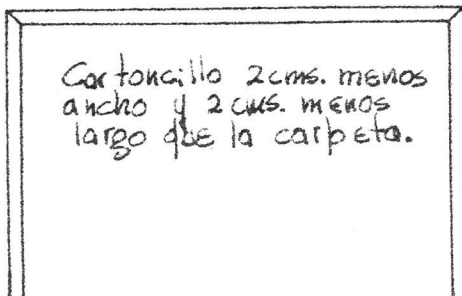 Cartoncillo 2cms. menos
ancho y 2cms. menos
largo que la carpeta.